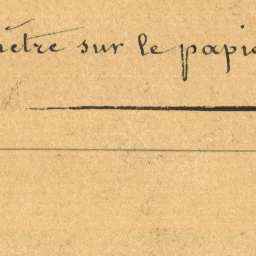 mètre sur le papie